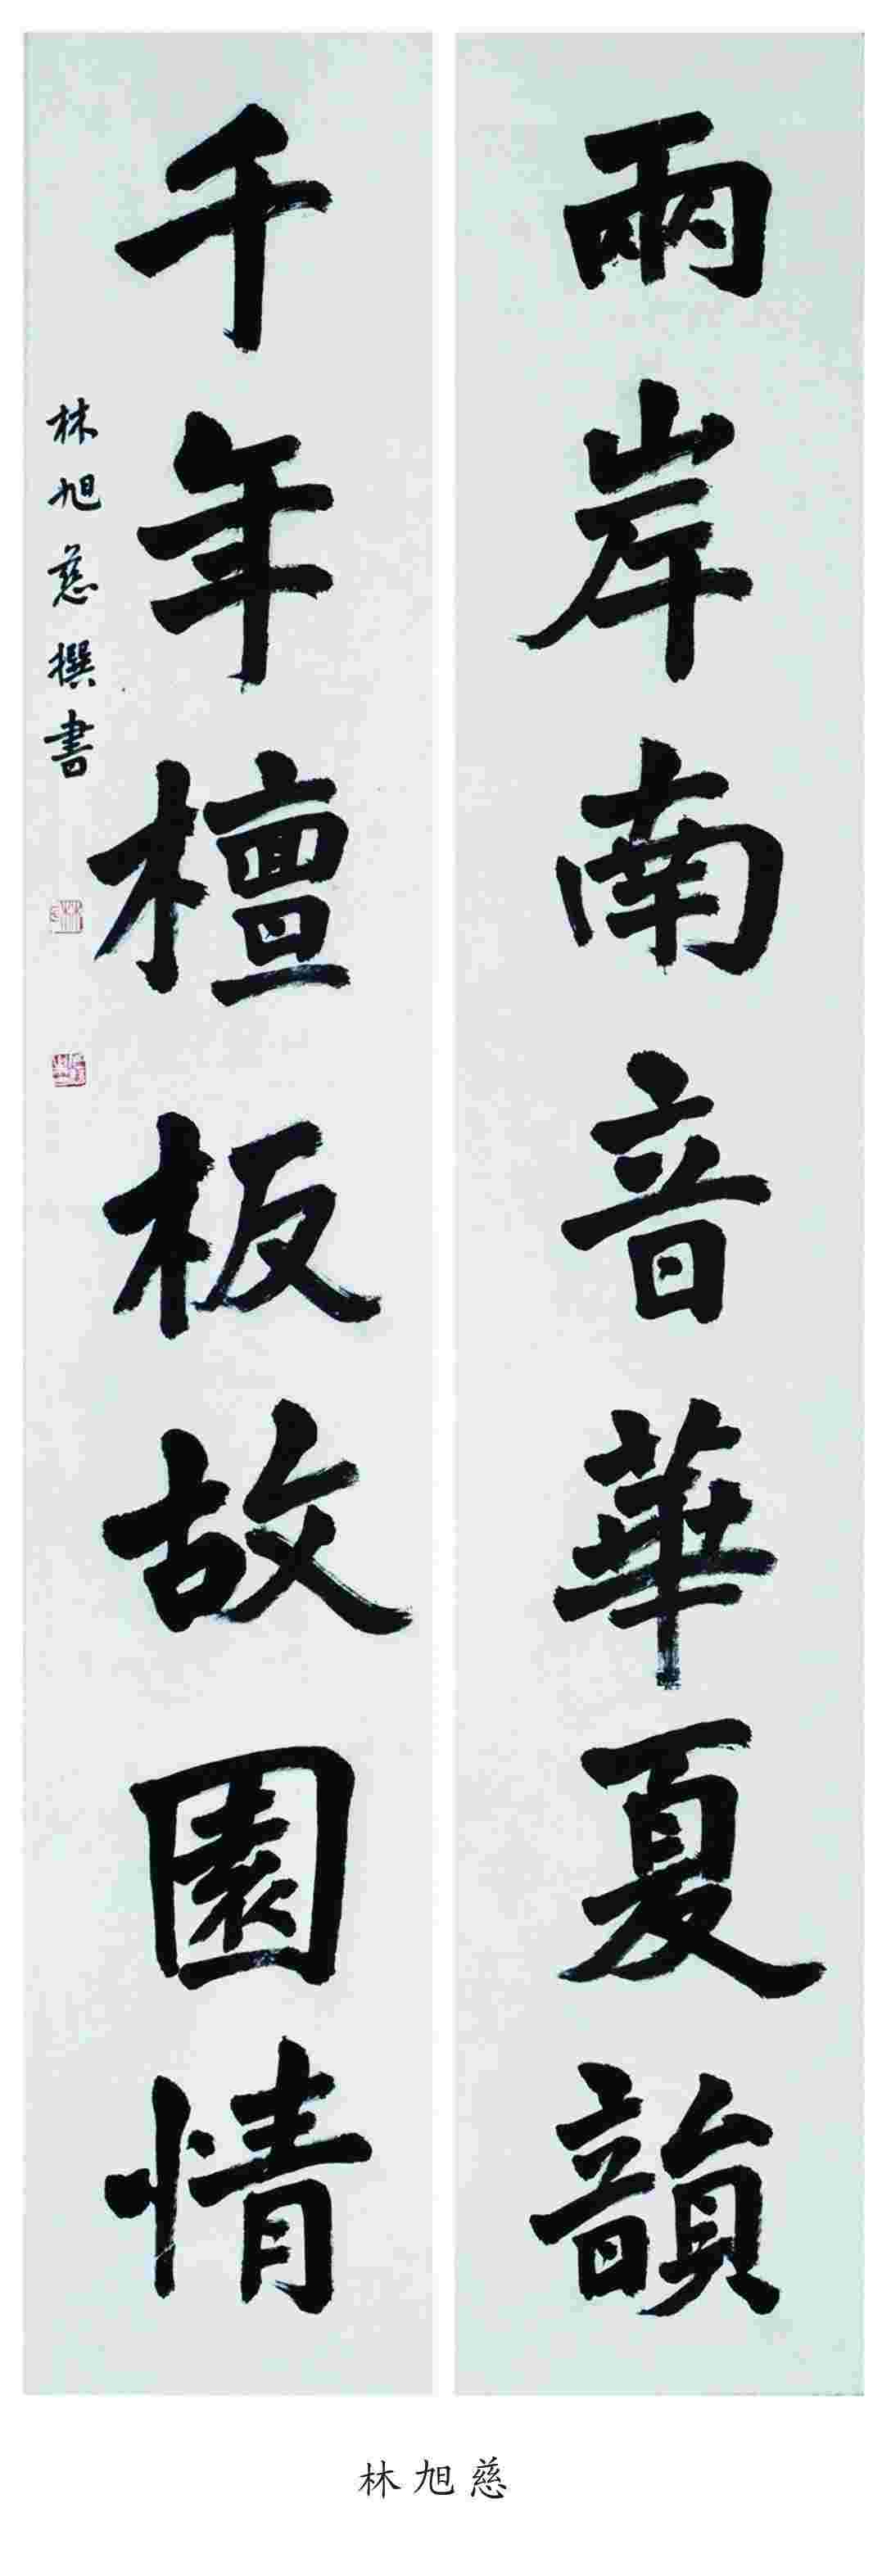 兩岸南音華夏韻
千年檀板故園情
林旭慈撰書
林旭慈